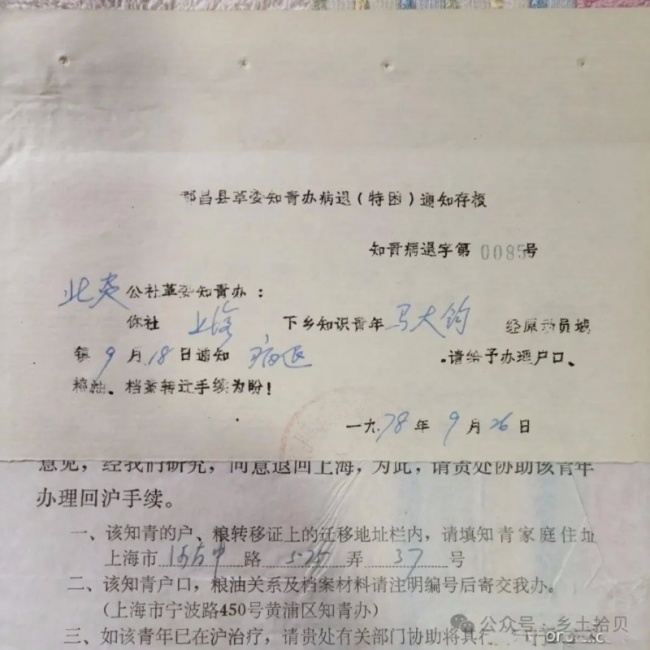 都昌县革委知青办病退(特困)通知存根
知青病退字第0085号
北炎公社革委知青办:
你社 上海 下乡知识青年 马大钧 经原动员城
镇9月18日通知 病退 。请给予办理户口、
粮油、档案转迁手续为盼!
一九78年9月26日
意见,经我们研究,同意退回上海,为此,请贵处协助该青年
办理回沪手续。
一、该知青的户、粮转移证上的迁移地址栏内,请填知青家庭住址
上海市 路 525 弄 37 号
二、该知青户口,粮油关系及档案材料请注明编号后寄交我办。
(上海市宁波路450号黄浦区知青办)
三、如该青年已在沪治疗,请贵处有关部门协助将其
公众号:乡土拾贝